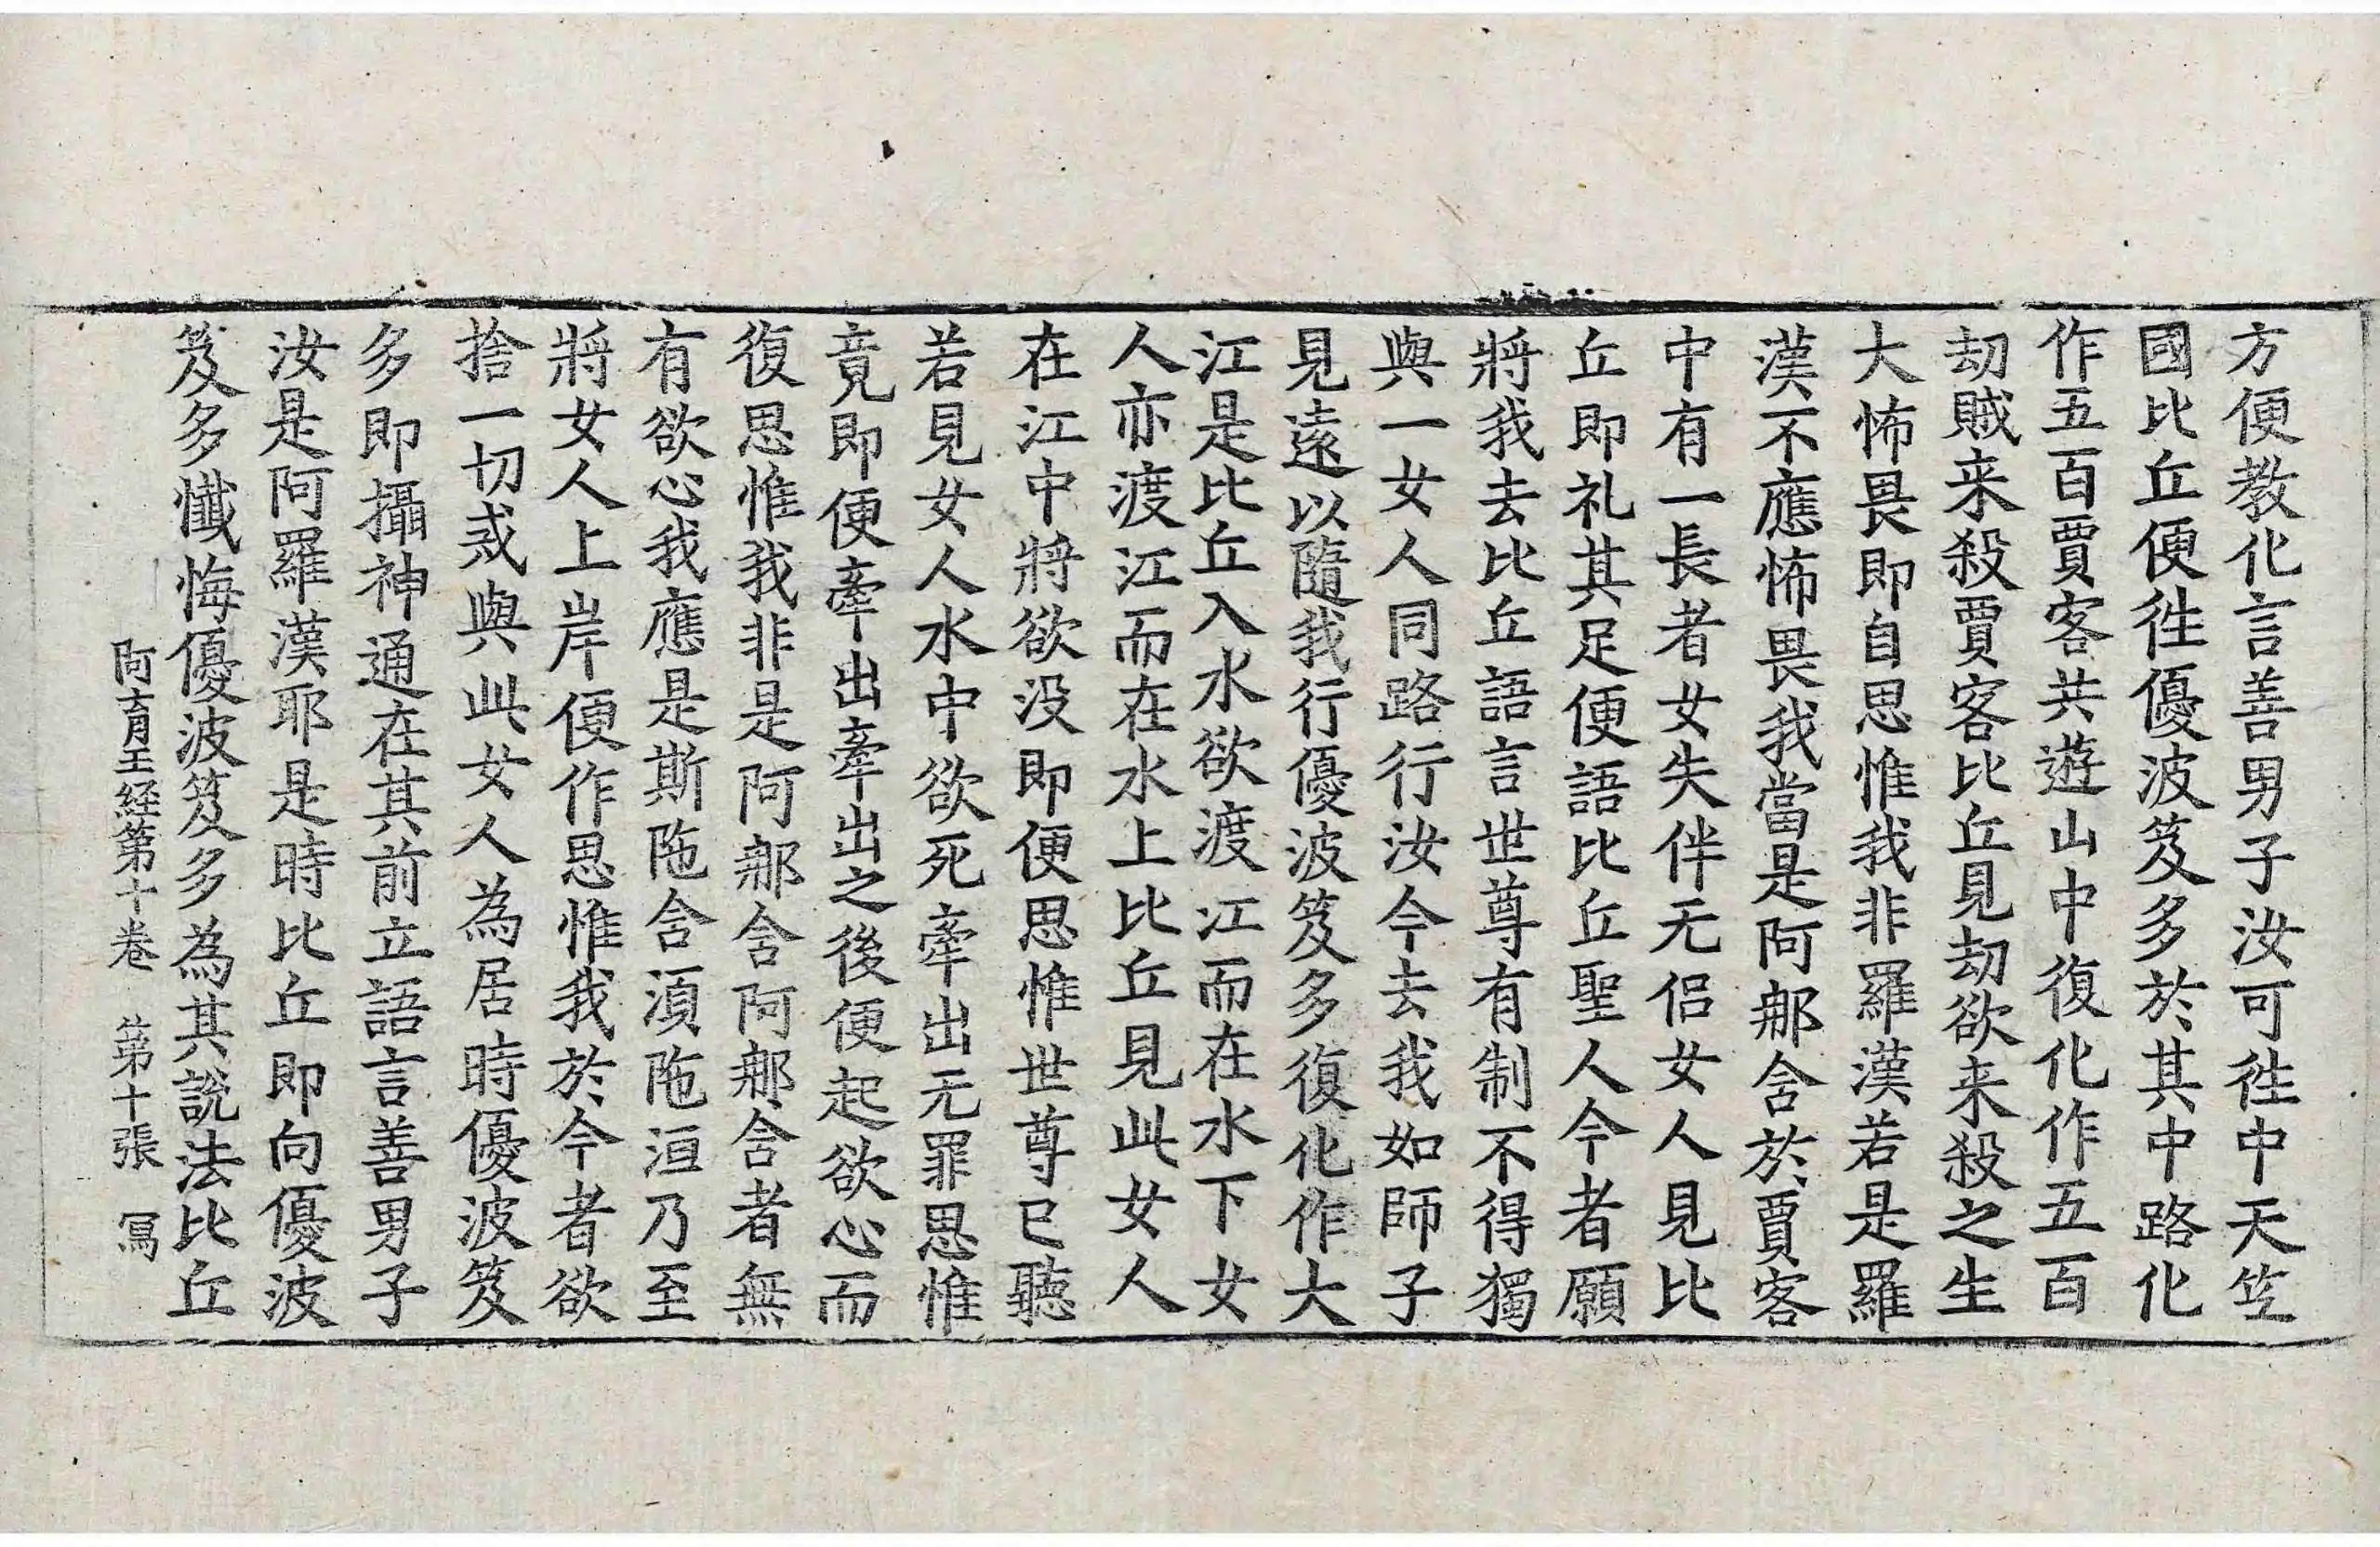 方便教化言善男子汝可徃中天笁
國比丘便徃優波笈多於其中路化
作五百賈客共遊山中復化作五百
劫賊来殺賈客比丘見劫欲来殺之生
大怖畏即自思惟我非羅漢若是羅
漢不應怖畏我當是阿那舍於賈客
中有一長者女失伴无侶女人見比
丘即礼其足便語比丘聖人今者願
將我去比丘語言世尊有制不得獨
與一女人同路行汝今去我如師子
見遠以隨我行優波笈多復化作大
江是比丘入水欲渡江而在水下女
人亦渡江而在水上比丘見此女人
在江中將欲没即便思惟世尊已聽
若見女人水中欲死牽出无罪思惟
竟即便牽出牽出之後便起欲心而
復思惟我非是阿那舍阿那舍者無
有欲心我應是斯陁舍湏陁洹乃至
將女人上岸便作思惟我於今者欲
捨一切戒與此女人為居時優波笈
多即攝神通在其前立語言善男子
汝是阿羅漢耶是時比丘即向優波
笈多懺悔優波笈多為其說法比丘
阿育王経第十卷 第十張 冩